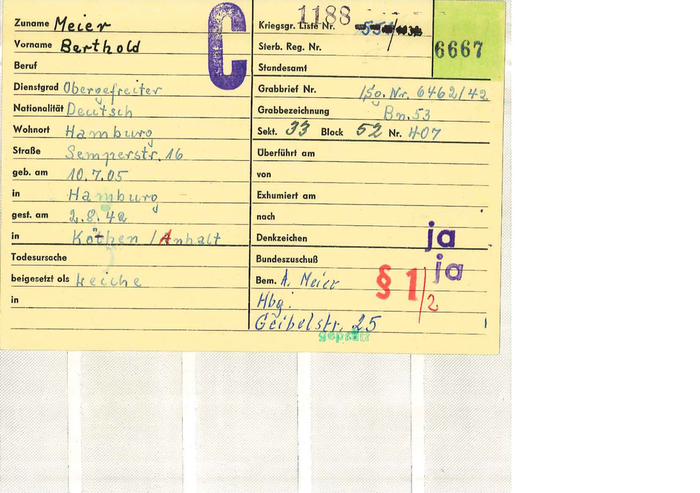 Zuname Meier
Vorname Berthold
Beruf
Dienstgrad Obergefreiter
Nationalität Deutsch
Wohnort Hamburg
Straße Semperstr. 16
geb. am 10.7.05
in Hamburg
gest. am 2.8.42
in Köthen / Anhalt
Todesursache
beigesetzt als Leiche
in
C
1188
Kriegsgr. Liste Nr.
Sterb. Reg. Nr.
6667
Standesamt
Grabbrief Nr. Nr. 6462/42
Grabbezeichnung Bn. 53
Sekt. 33 Block 52 Nr. 407
Überführt am
von
Exhumiert am
nach
Denkzeichen ja
Bundeszuschuß ja
Bem. A. Meier § 1/2
Hbg.
Geibelstr. 25
geprüft